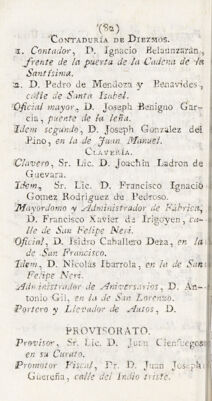 (82)
CONTADURÍA DE DIEZMOS.
1. Contador, D. Ignacio Belaunzarán,
frente de la puerta de la Cadena de la
Santísima.
2. D. Pedro de Mendoza y Benavides,
calle de Santa Isabel.
Oficial mayor, D. Joseph Benigno Gar-
cia, puente de la leña.
Idem segundo, D. Joseph Gonzalez del
Pino, en la de Juan Manuel.
CLAVERÍA.
Clavero, Sr. Lic. D. Joachin Ladron de
Guevara.
Idem, Sr. Lic. D. Francisco Ignacio
Gomez Rodriguez de Pedroso.
Mayordomo y Administrador de Fábrica,
D. Francisco Xavier de Irigoyen, ca-
lle de San Felipe Neri.
Oficial, D. Isidro Caballero Deza, en la
de San Francisco.
Idem, D. Nicolás Ibarrola, en la de San
Felipe Neri.
Administrador de Aniversarios, D. An-
tonio Gil, en la de San Lorenzo.
Portero y Llevador de Autos, D.
PROVISORATO.
Provisor, Sr. Lic. D. Juan Cienfuegos
en su Curato.
Promotor Fiscal, Dr. D. Juan Joseph
Güereña, calle del Indio triste.